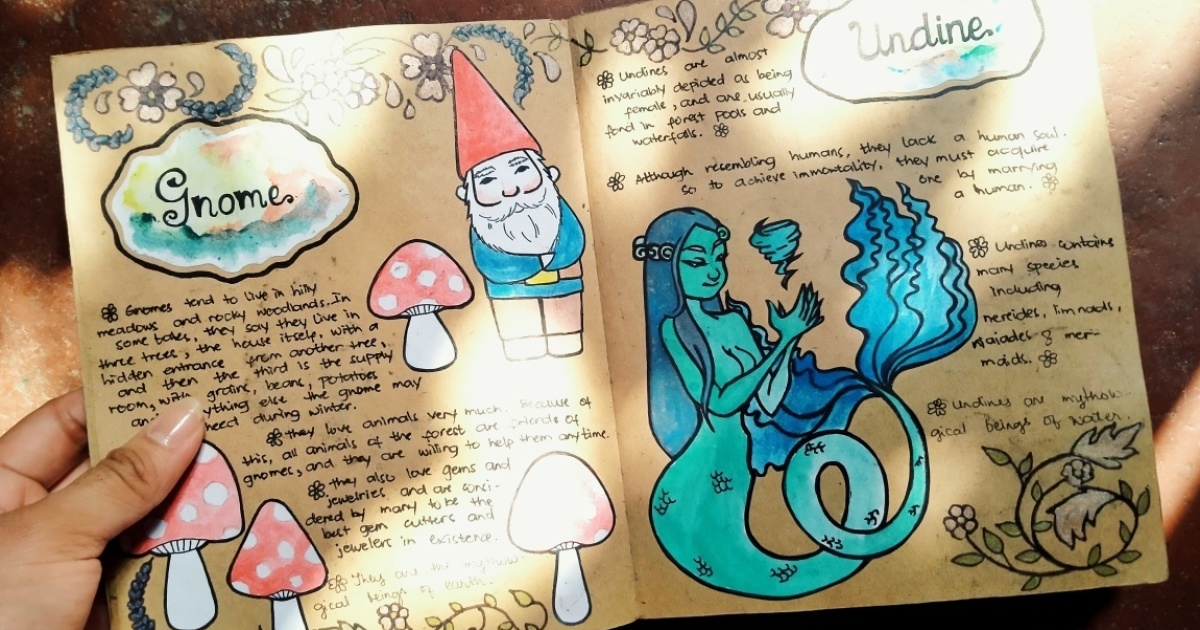 Gnome
Gnomes tend to live in hilly
meadows and rocky woodlands. In
some tales, they say they live in
three trees, the house itself, with a
hidden entrance from another tree,
and then the third is the supply
room, with grains, beans, potatoes
anything else the gnome may
need during winter.
they love animals very much. Because of
this, all animals of the forest are friends of
gnomes, and they are willing to help them anytime.
they also love gems and
jewelries and are consi-
dered by many to be the
best gem cutters and
jewelers in existence.
They are the mytholo-
gical beings of earth.
Undine
Undines are almost
invariably depicted as being
female, and are usually
fond in forest pools and
waterfalls.
Although resembling humans, they lack a human soul.
so to achieve immortality, they must acquire
one by marrying
a human.
Undines contains
many species
including
nereides, limnads,
naiades & mer-
maids.
Undines are mytholo-
gical beings of water.